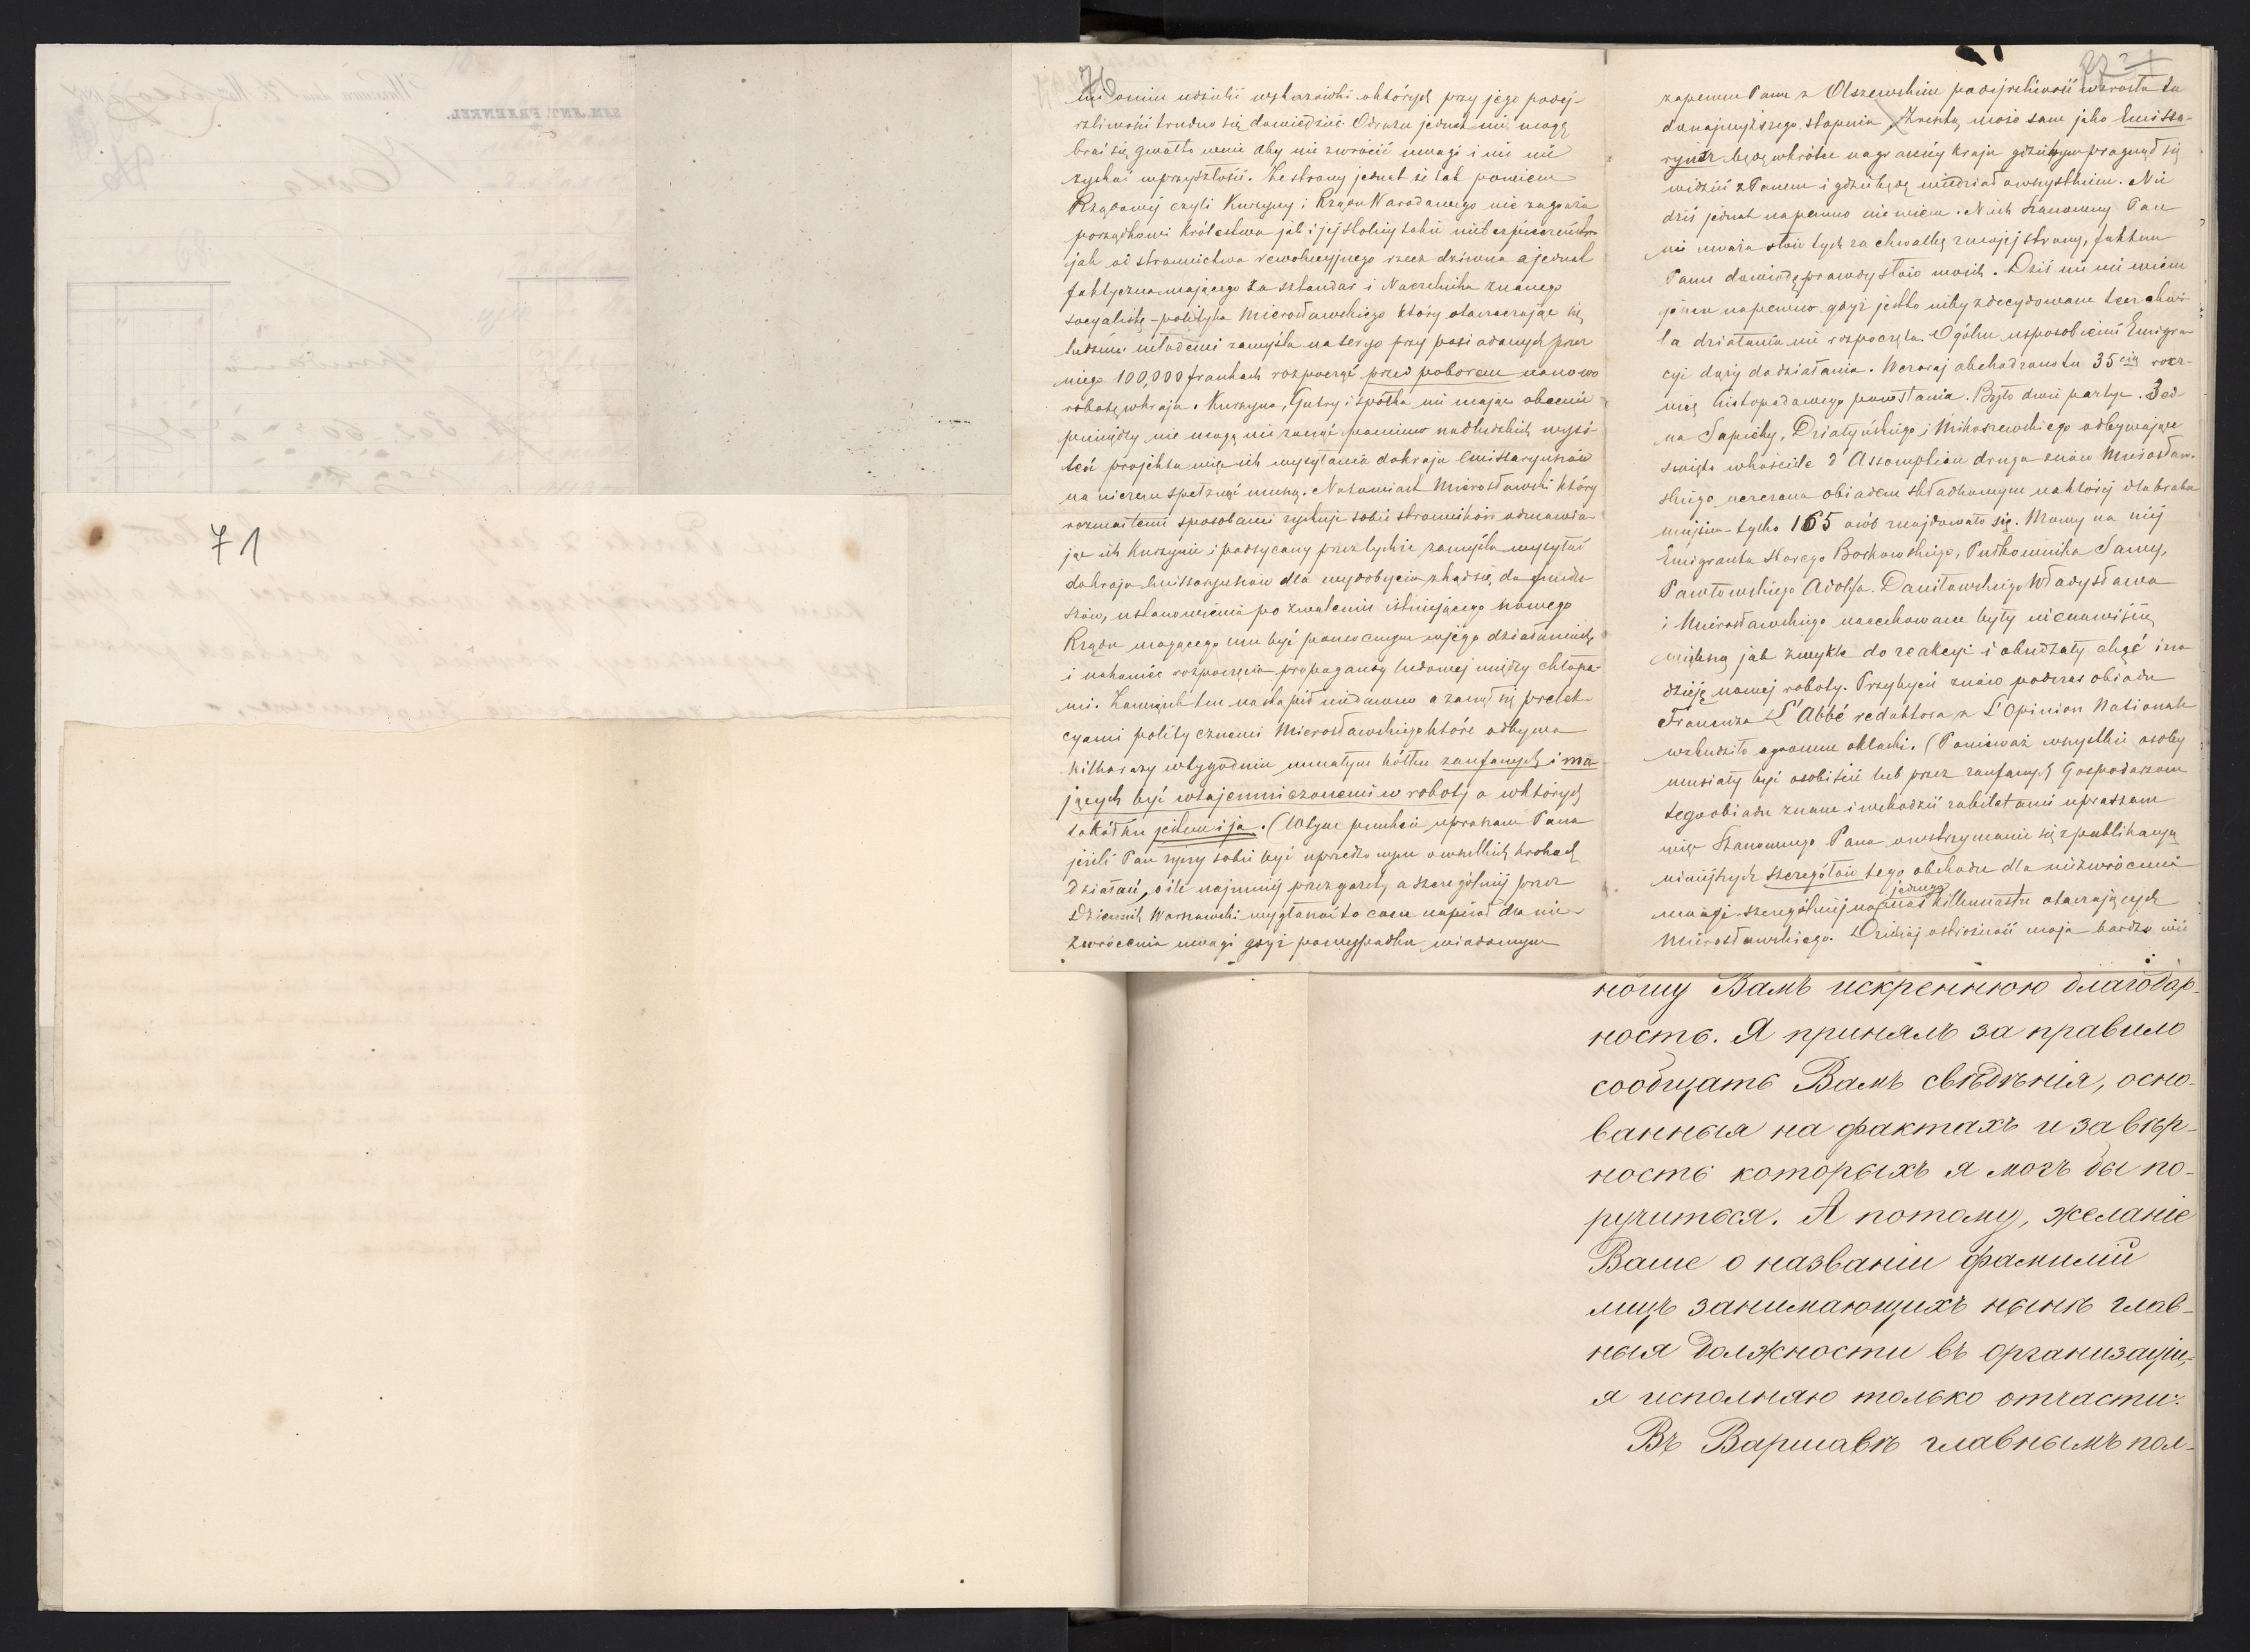 71
76
mi onim udzielić wskazówki o których przy jego podej-
rzliwości trudno się dowiedzieć. Odrazu jednak nie mogę
brać się gwałtownie aby nie zwrócić uwagi i nic nie
zyskać w przyszłości. Ze strony jednak że tak powiem
Rządowej czyli Kurzyny i Rządu Narodowego nie zagraża
porządkowi Królestwa jak i jej stolicy takie niebezpieczeństwo
jak od stronnictwa rewolucyjnego rzecz dziwna a jednak
faktyczna mającego za sztandar i Naczelnika znanego
socyalistę-polityka Mierosławskiego który otaczając się
ludźmi młodemi zamyśla na seryo przy posiadanych przez
niego 100,000 frankach rozpocząć przed poborem na nowo
robotę w kraju. Kurzyna, Gutry i spółka nie mając obecnie
pieniędzy nie mogą nic zacząć pomimo nadludzkich wysi-
leń projekta więc ich wysyłania do kraju Emissaryuszów
na niczem spełznąć muszą. Natomiast Mierosławski który
rozmaitemi sposobami zyskuje sobie stronników odmawia-
jąc ich Kurzynie i podsycany przez tychże zamyśla wysyłać
do kraju Emissaryuszów dla wydobycia zkąd się da fundu-
szów, ustanowienia po zwaleniu istniejącego nowego
Rządu mogącego mu być pomocnym w jego działaniach
i nakoniec rozpoczęcia propagandy ludowej między chłopa-
mi. Zamiar ten nastąpił niedawno a zaczął się prelek-
cyami politycznemi Mierosławskiego które odbywa
kilka razy w tygodniu w małym kółku zaufanych i ma-
jących być wtajemniczonemi w roboty a w których
to kółku jestem i ja. (W tym punkcie upraszam Pana
jeżeli Pan życzy sobie być uprzedzonym o wszelkich krokach
działań, o ile najmniej przez gazety a szczególniej przez
Dziennik Warszawski wygłaszać to com napisał dla nie-
zwrócenia uwagi gdyż po wypadku wiadomym
zapewne Panu z Olszewskim podejrzliwość wzrosła tu
do najwyższego stopnia, Zresztą może sam jako Emissa-
ryusz będę wkrótce na granicy kraju gdzie bym pragnął się
widzieć z Panem i gdzie będę wiedział o wszystkiem. Nic
dziś jednak na pewno nie wiem. Niech Szanowny Pan
nie uważa słów tych za chwalbę z mojej strony, faktem
Panu dowiodę prawdy słów moich. Dziś nic nie wiem
jeszcze na pewno gdyż jest to niby zdecydowane lecz chwi-
la działania nie rozpoczęta. Ogólne usposobienie Emigra-
cyi dąży do działania. Wczoraj obchodzono tu 35cią rocz-
nicę listopadowego powstania. Było dwie partye. Jed-
na Sapiehy, Działyńskiego i Mikoszewskiego odbywające
święto w kościele d'Assomption druga znów Mierosław-
skiego uczczona obiadem składkowym na której dla braku
miejsca-tylko 165 osób znajdowało się. Mowy na niej
Emigranta starego Borkowskiego, Pułkownika Sawy,
Pawłowskiego Adolfa. Daniłowskiego Władysława
i Mierosławskiego nacechowane były nienawiścią
wielką jak zwykle do reakcyi i obudzały chęć i na-
dzieję nowej roboty. Przybycie znów podczas obiadu
Francuza L'Abbé redaktora z L'Opinion Nationale
wzbudziło ogromne oklaski. (Ponieważ wszystkie osoby
musiały być osobiście lub przez zaufanych Gospodarzom
tego obiadu znane i wchodzić za biletami upraszam
więc Szanownego Pana o wstrzymanie się z publikacyą
niniejszych szczegółów tego obchodu dla niezwrócenia
jednego
uwagi szczególniej na z nas kilkunastu otaczających
Mierosławskiego. Dzisiaj ostrożność moja bardzo wie
ношу Вамъ искреннюю благодар-
ность. Я принялъ за правило
сообщать Вамъ свѣдѣнія, осно-
ванныя на фактахъ и за вѣр-
ность которыхъ я могъ бы по-
ручиться. А потому, желаніе
Ваше о названіи фамилій
лицъ занимающихъ нынѣ глав-
ныя должности въ организаціи,
я исполняю только отчасти:
Въ Варшавѣ главнымъ пол-